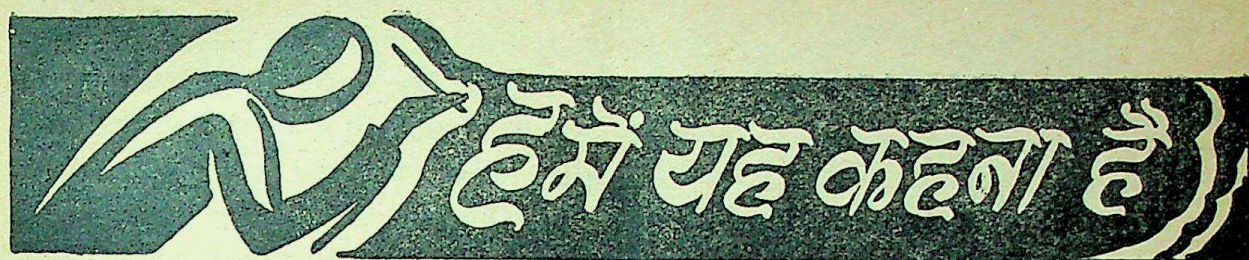 हमें यह कहना है